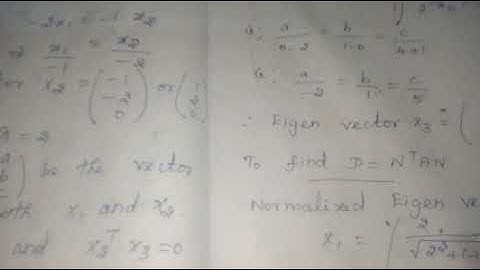 -2x₁ = -1 x₂
x₁/-1 = x₂/-2
x₂ = (-1 -2 0) or (1 2 0)
= 2
be the vector
x₁ and x₂
and x₂ᵀ x₃ = 0
a/0-2 = b/1-0 = c/4+1
a/-2 = b/1 = c/5
∴ Eigen vector x₃ = (
To find D = NᵀAN
Normalized Eigen ve
x₁ = ( 2/√2²+(-